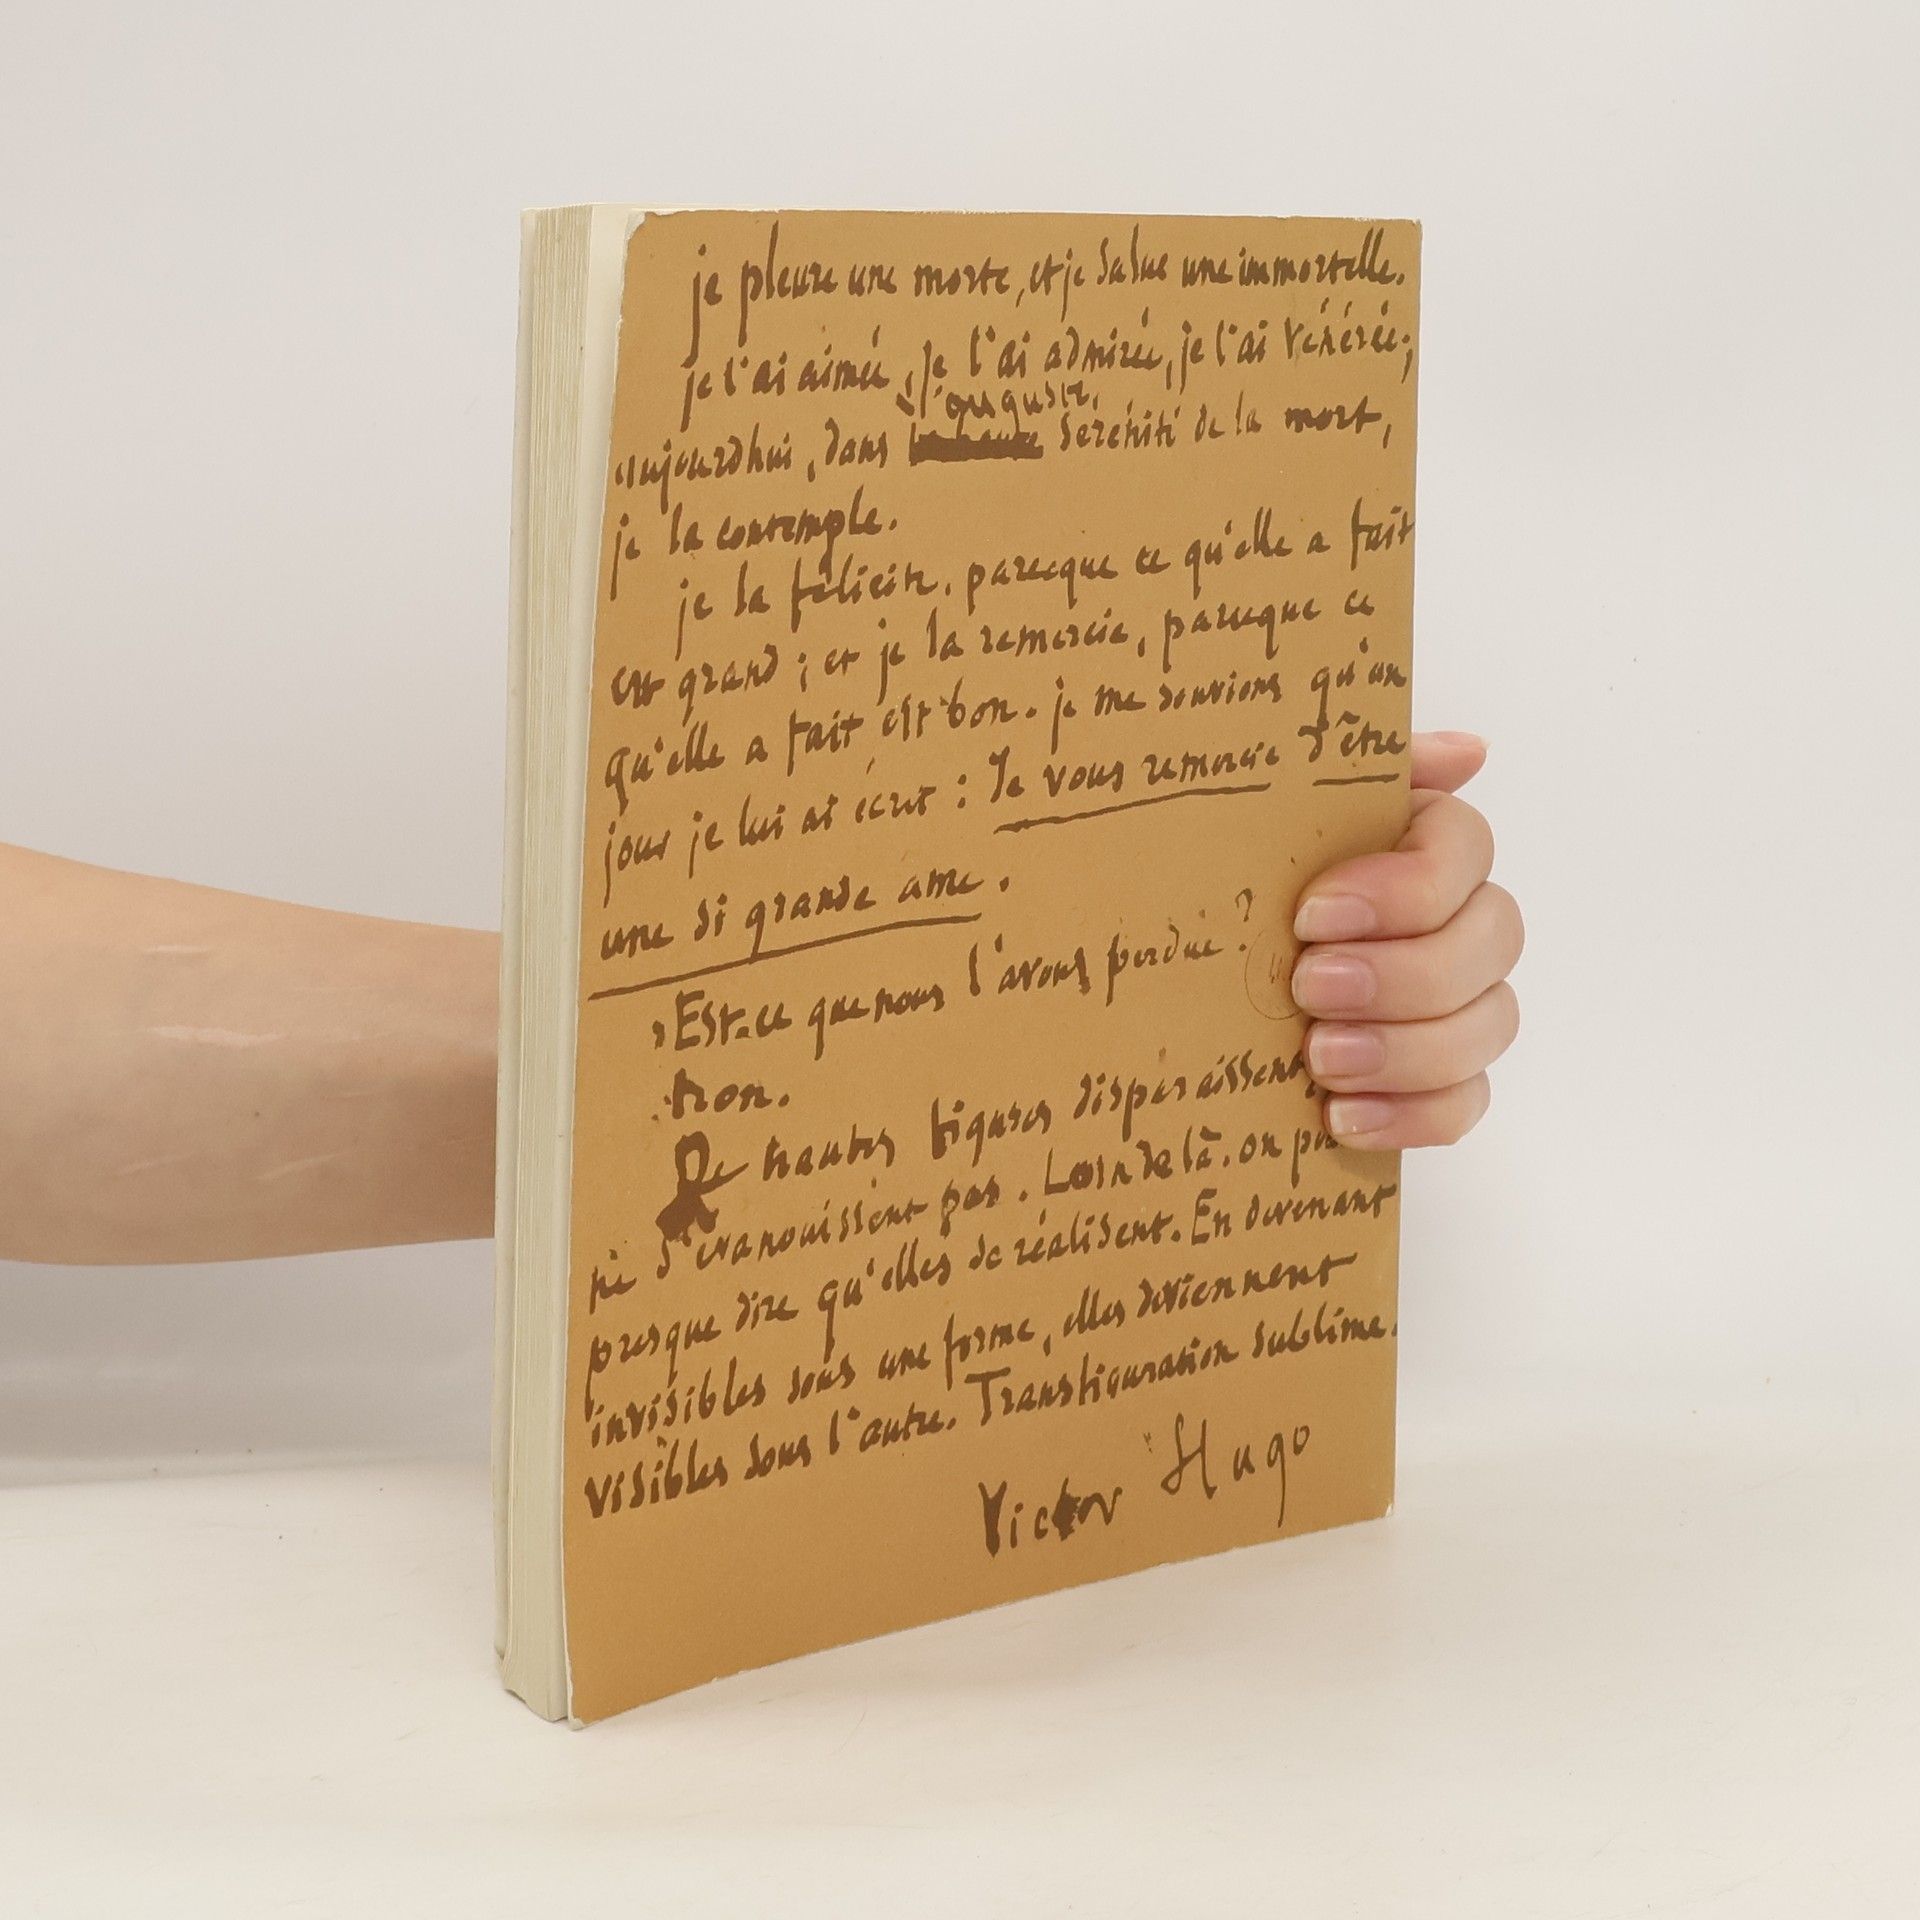 je pleure une morte, et je salue une immortelle.
je l'ai aimée, je l'ai admirée, je l'ai vénérée;
l'auguste
aujourdhui, dans sérénité de la mort,
je la contemple.
je la félicite, parceque ce qu'elle a fait
est grand; et je la remercie, parceque ce
qu'elle a fait est bon. je me souviens qu'un
jour je lui ai écrit: Je vous remercie d'être
une si grande ame.
Est-ce que nous l'avons perdue?
non.
De hautes figures disparaissent,
ne s'evanouissent pas. Loin de là, on
presque dire qu'elles se réalisent. En devenant
invisibles sous une forme, elles deviennent
visibles sous l'autre. Transfiguration sublime.
Victor Hugo